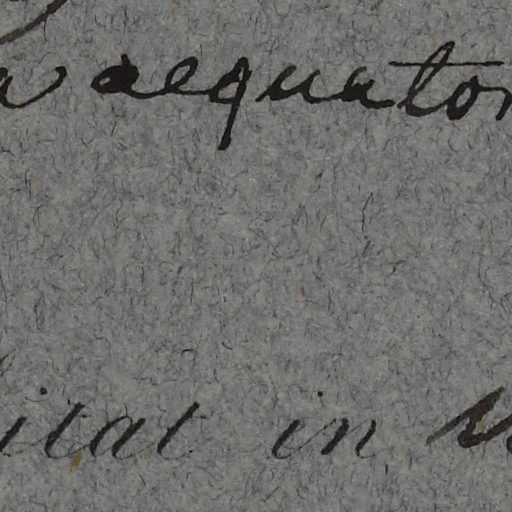 aequator
itat in